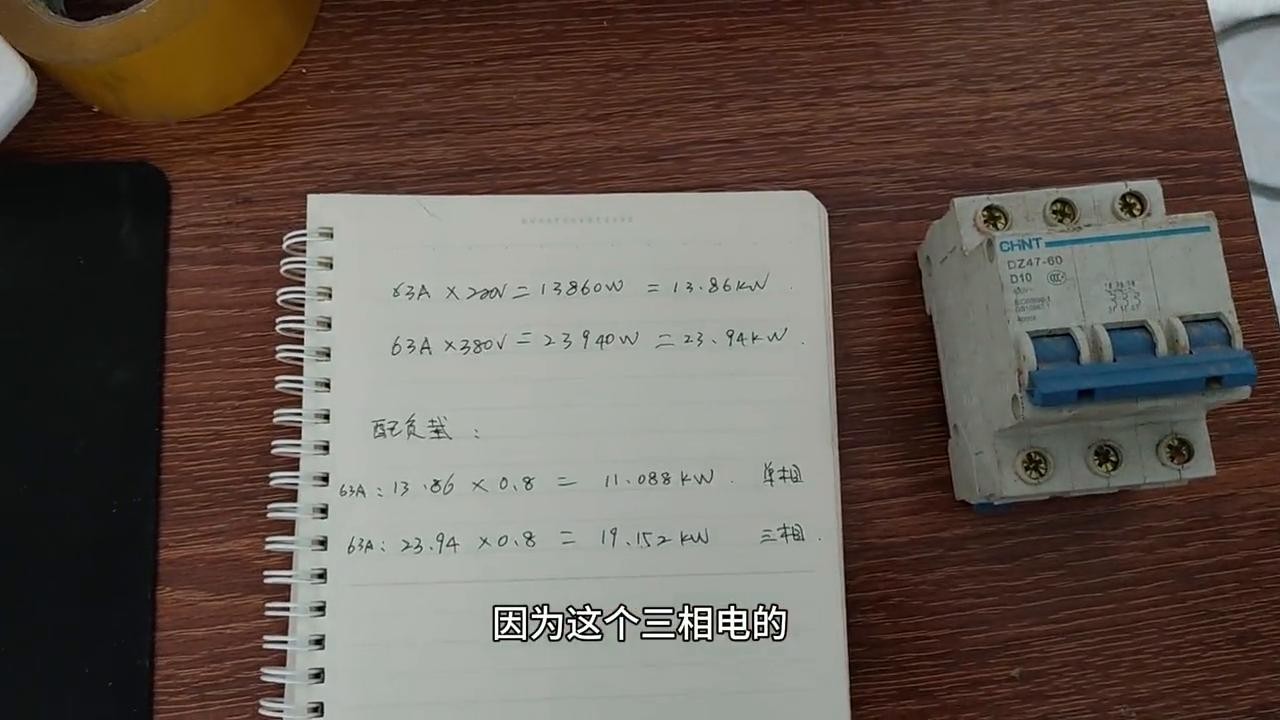 63A × 220V = 13860W = 13.86kW.
63A × 380V = 23940W = 23.94kW.
配负载:
63A: 13.86 × 0.8 = 11.088kW. 单相
63A: 23.94 × 0.8 = 19.152kW 三相.
CHNT
DZ47-60
D10
因为这个三相电的